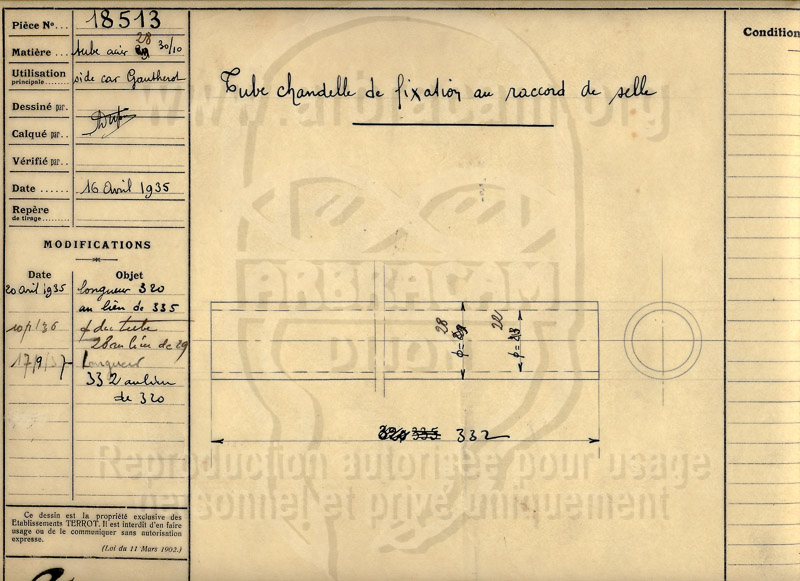 Pièce No... 18513
Matière... tube acier 28 30/10
Utilisation principale........ side car Gautherot
Dessiné par.
Calqué par..
Vérifié par..
Date ...... 16 Avril 1935
Repère de tirage........
MODIFICATIONS
Date Objet
20 avril 1935 longueur 320
au lieu de 335
du tube
28 au lieu de 29
17/9/37 Longueur
332 au lieu
de 320
Ce dessin est la propriété exclusive des
Etablissements TERROT. Il est interdit d'en faire
usage ou de le communiquer sans autorisation
expresse.
(Loi du 11 Mars 1902.)
Tube chandelle de fixation au raccord de selle
28
φ=29
22
φ=23
320 335 332
Condition
www.arbracam.org
ARBRACAM
DIJON
Reproduction autorisée pour usage
personnel et privé uniquement